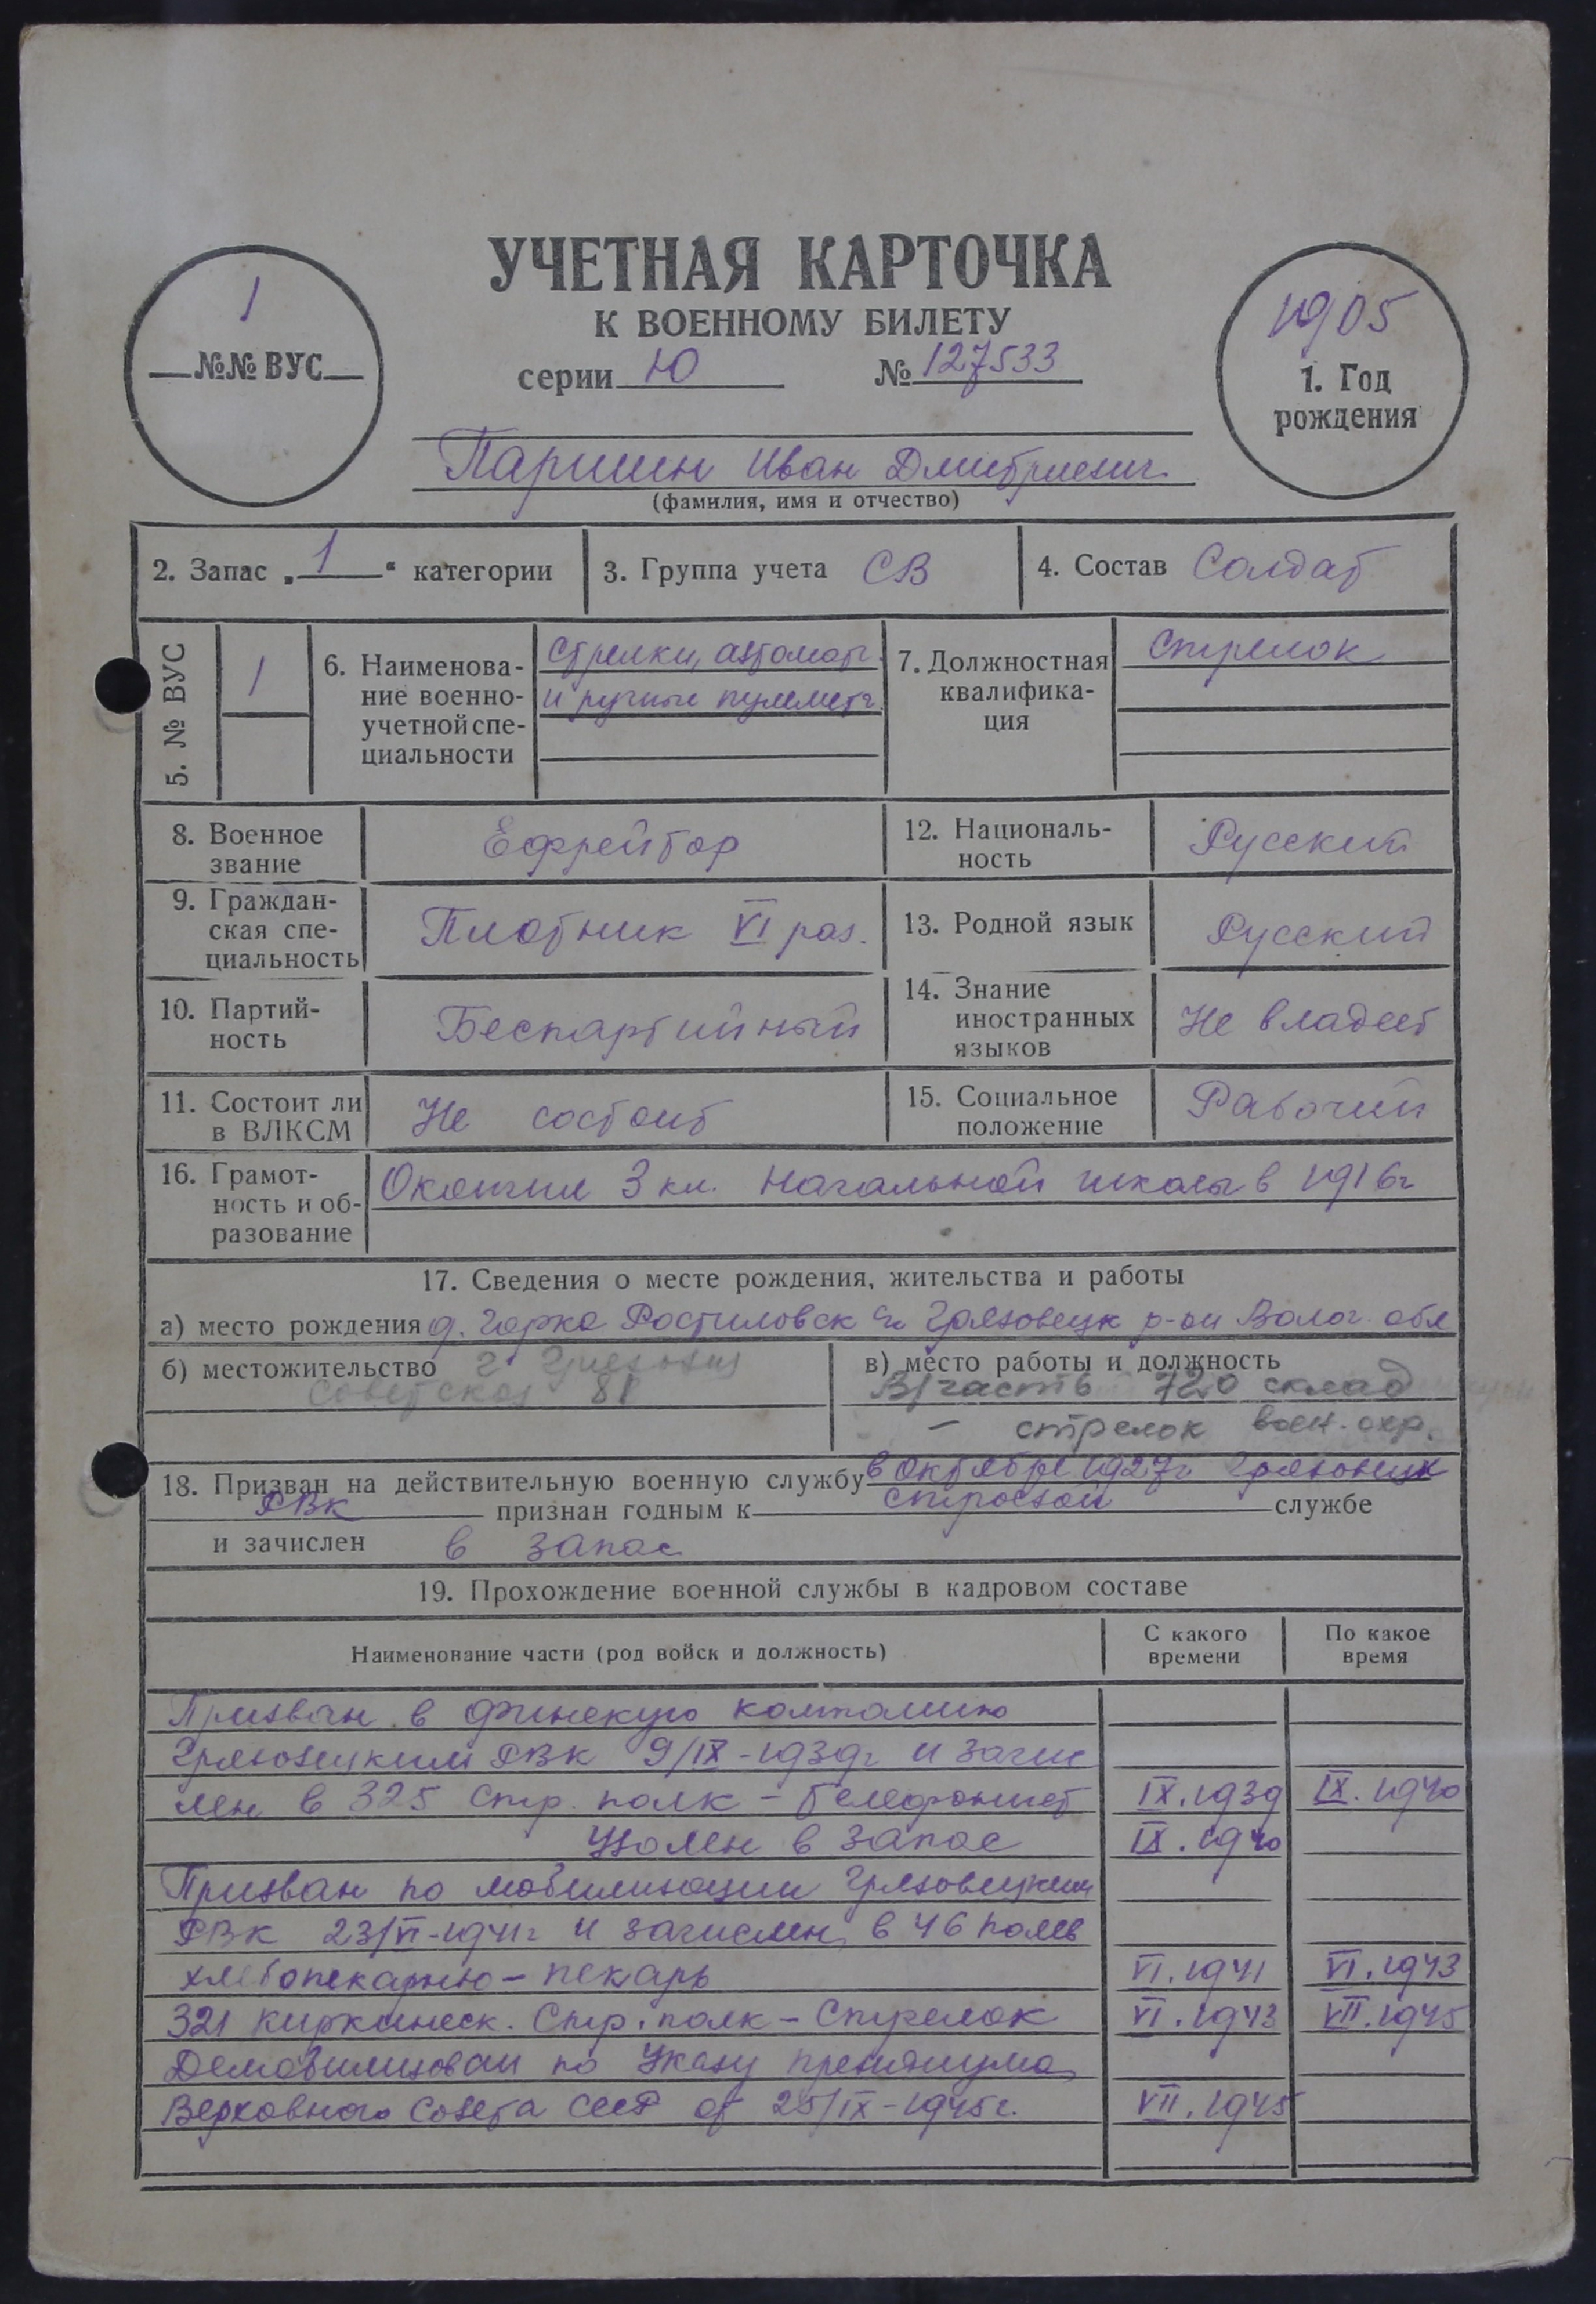 УЧЕТНАЯ КАРТОЧКА
К ВОЕННОМУ БИЛЕТУ
серии Ю № 127533
1
№№ ВУС
1905
1. Год
рождения
Паршин Иван Дмитриевич
(фамилия, имя и отчество)
2. Запас „1“ категории
3. Группа учета СВ
4. Состав Солдат
5. № ВУС
1
6. Наименова-
ние военно-
учетной спе-
циальности
Стрелки, автомат.
и ручные пулеметч.
7. Должностная
квалифика-
ция
Стрелок
8. Военное
звание
Ефрейтор
12. Националь-
ность
Русский
9. Граждан-
ская спе-
циальность
Плотник VI раз.
13. Родной язык
Русский
10. Партий-
ность
Беспартийный
14. Знание
иностранных
языков
Не владеет
11. Состоит ли
в ВЛКСМ
Не состоит
15. Социальное
положение
Рабочий
16. Грамот-
ность и об-
разование
Окончил 3 кл. Начальной школы в 1916г
17. Сведения о месте рождения, жительства и работы
а) место рождения д. Горка Ростиловск Грязовецк р-он Волог. обл
б) местожительство г.
Советская 81
в) место работы и должность
В/часть 720 склад
— стрелок воен. охр.
18. Призван на действительную военную службу в октябре 1927г Грязовецк
РВК признан годным к строевой службе
и зачислен в запас
19. Прохождение военной службы в кадровом составе
Наименование части (род войск и должность)
С какого
времени
По какое
время
Призван в финскую компанию
Грязовецким РВК 9/IX-1939г и зачис
лен в 325 стр. полк - телефонист IX.1939 IX.1940
Уволен в запас IX.1940
Призван по мобилизации Грязовецким
РВК 23/VI-1941г и зачислен в 46 полев
хлебопекарню - пекарь VI.1941 VI.1943
321 киркинеск. Стр. полк - Стрелок VI.1943 VII.1945
Демобилизован по Указу президиума
Верховного Совета СССР от 25/IX-1945г. VII.1945